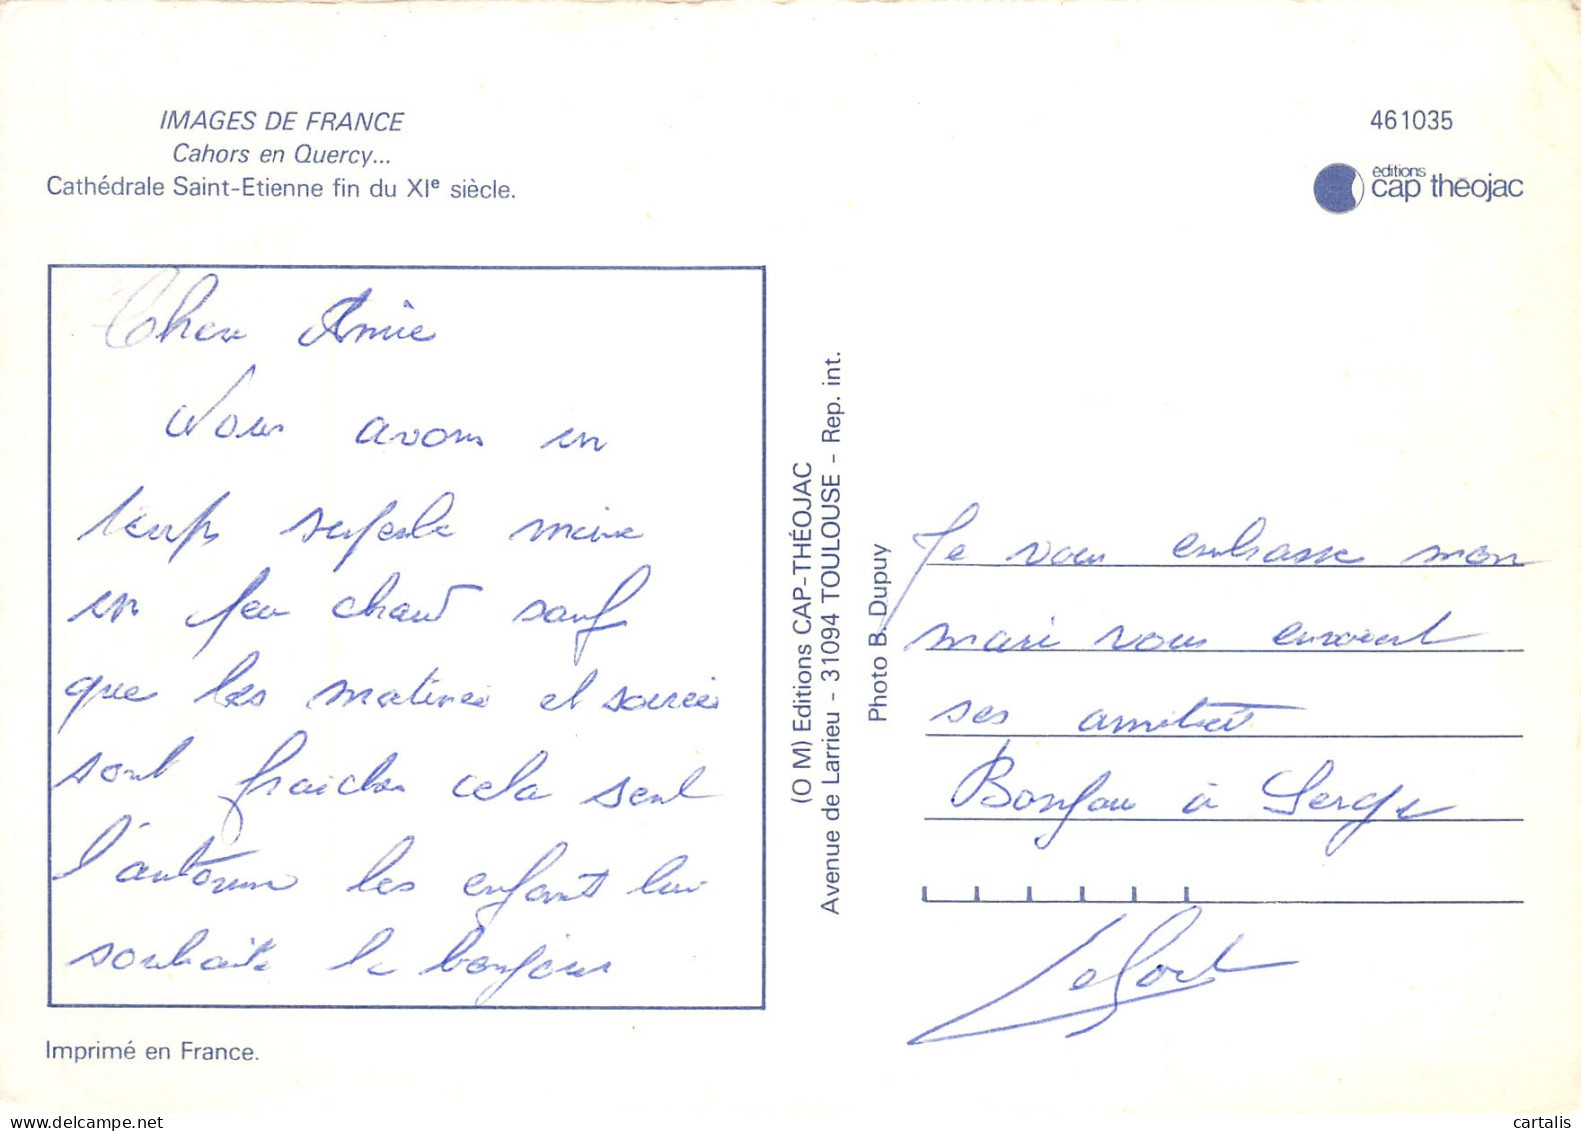 IMAGES DE FRANCE
Cahors en Quercy...
Cathédrale Saint-Etienne fin du XIe siècle.
461035
editions
cap théojac
Cher Amie
Nous avons un
temps superbe meme
un peu chaud sauf
que les matinée et soirée
sont fraiche cela sent
l'automne les enfants lui
souhaite le bonjour
Imprimé en France.
(O M) Editions CAP-THÉOJAC
Avenue de Larrieu - 31094 TOULOUSE - Rep. int.
Photo B. Dupuy
Je vous embrasse mon
mari vous envoient
ses amitiés
Bonjour à Serge
Lefort
cartalis